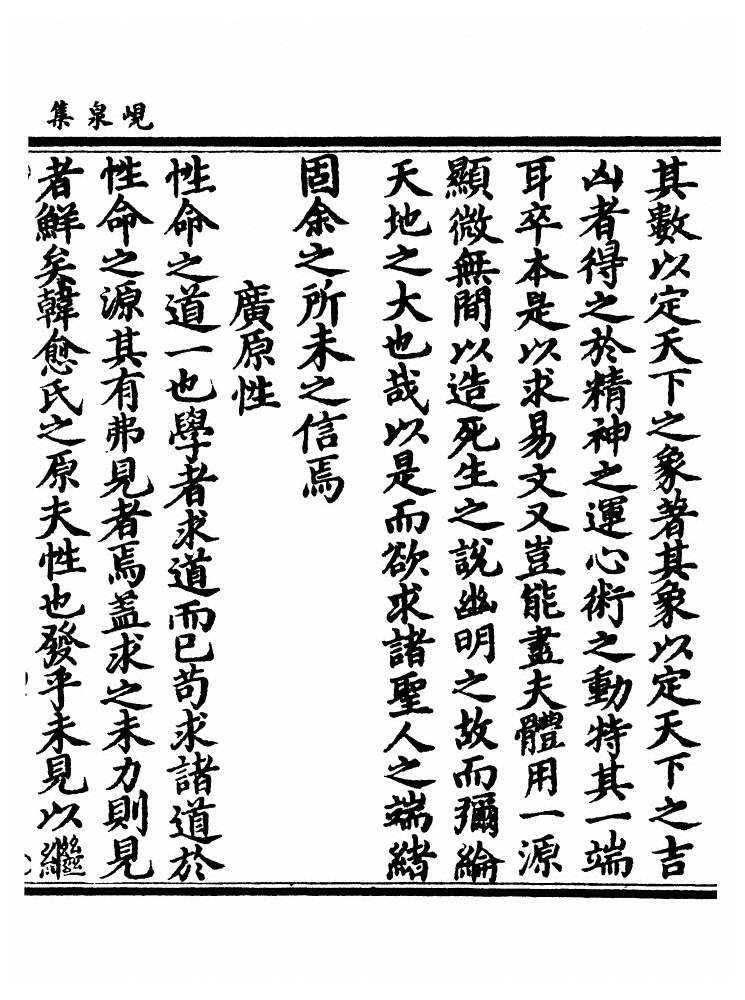 峴泉集
其數以定天下之象著其象以定天下之吉
凶者得之於精神之運心術之動特其一端
耳卒本是以求易文又豈能盡夫體用一源
顯微無間以造死生之說幽明之故而彌綸
天地之大也哉以是而欲求諸聖人之端緒
固余之所未之信焉
廣原性
性命之道一也學者求道而已苟求諸道於
性命之源其有弗見者焉盖求之未力則見
者鮮矣韓愈氏之原夫性也發乎未見以繼